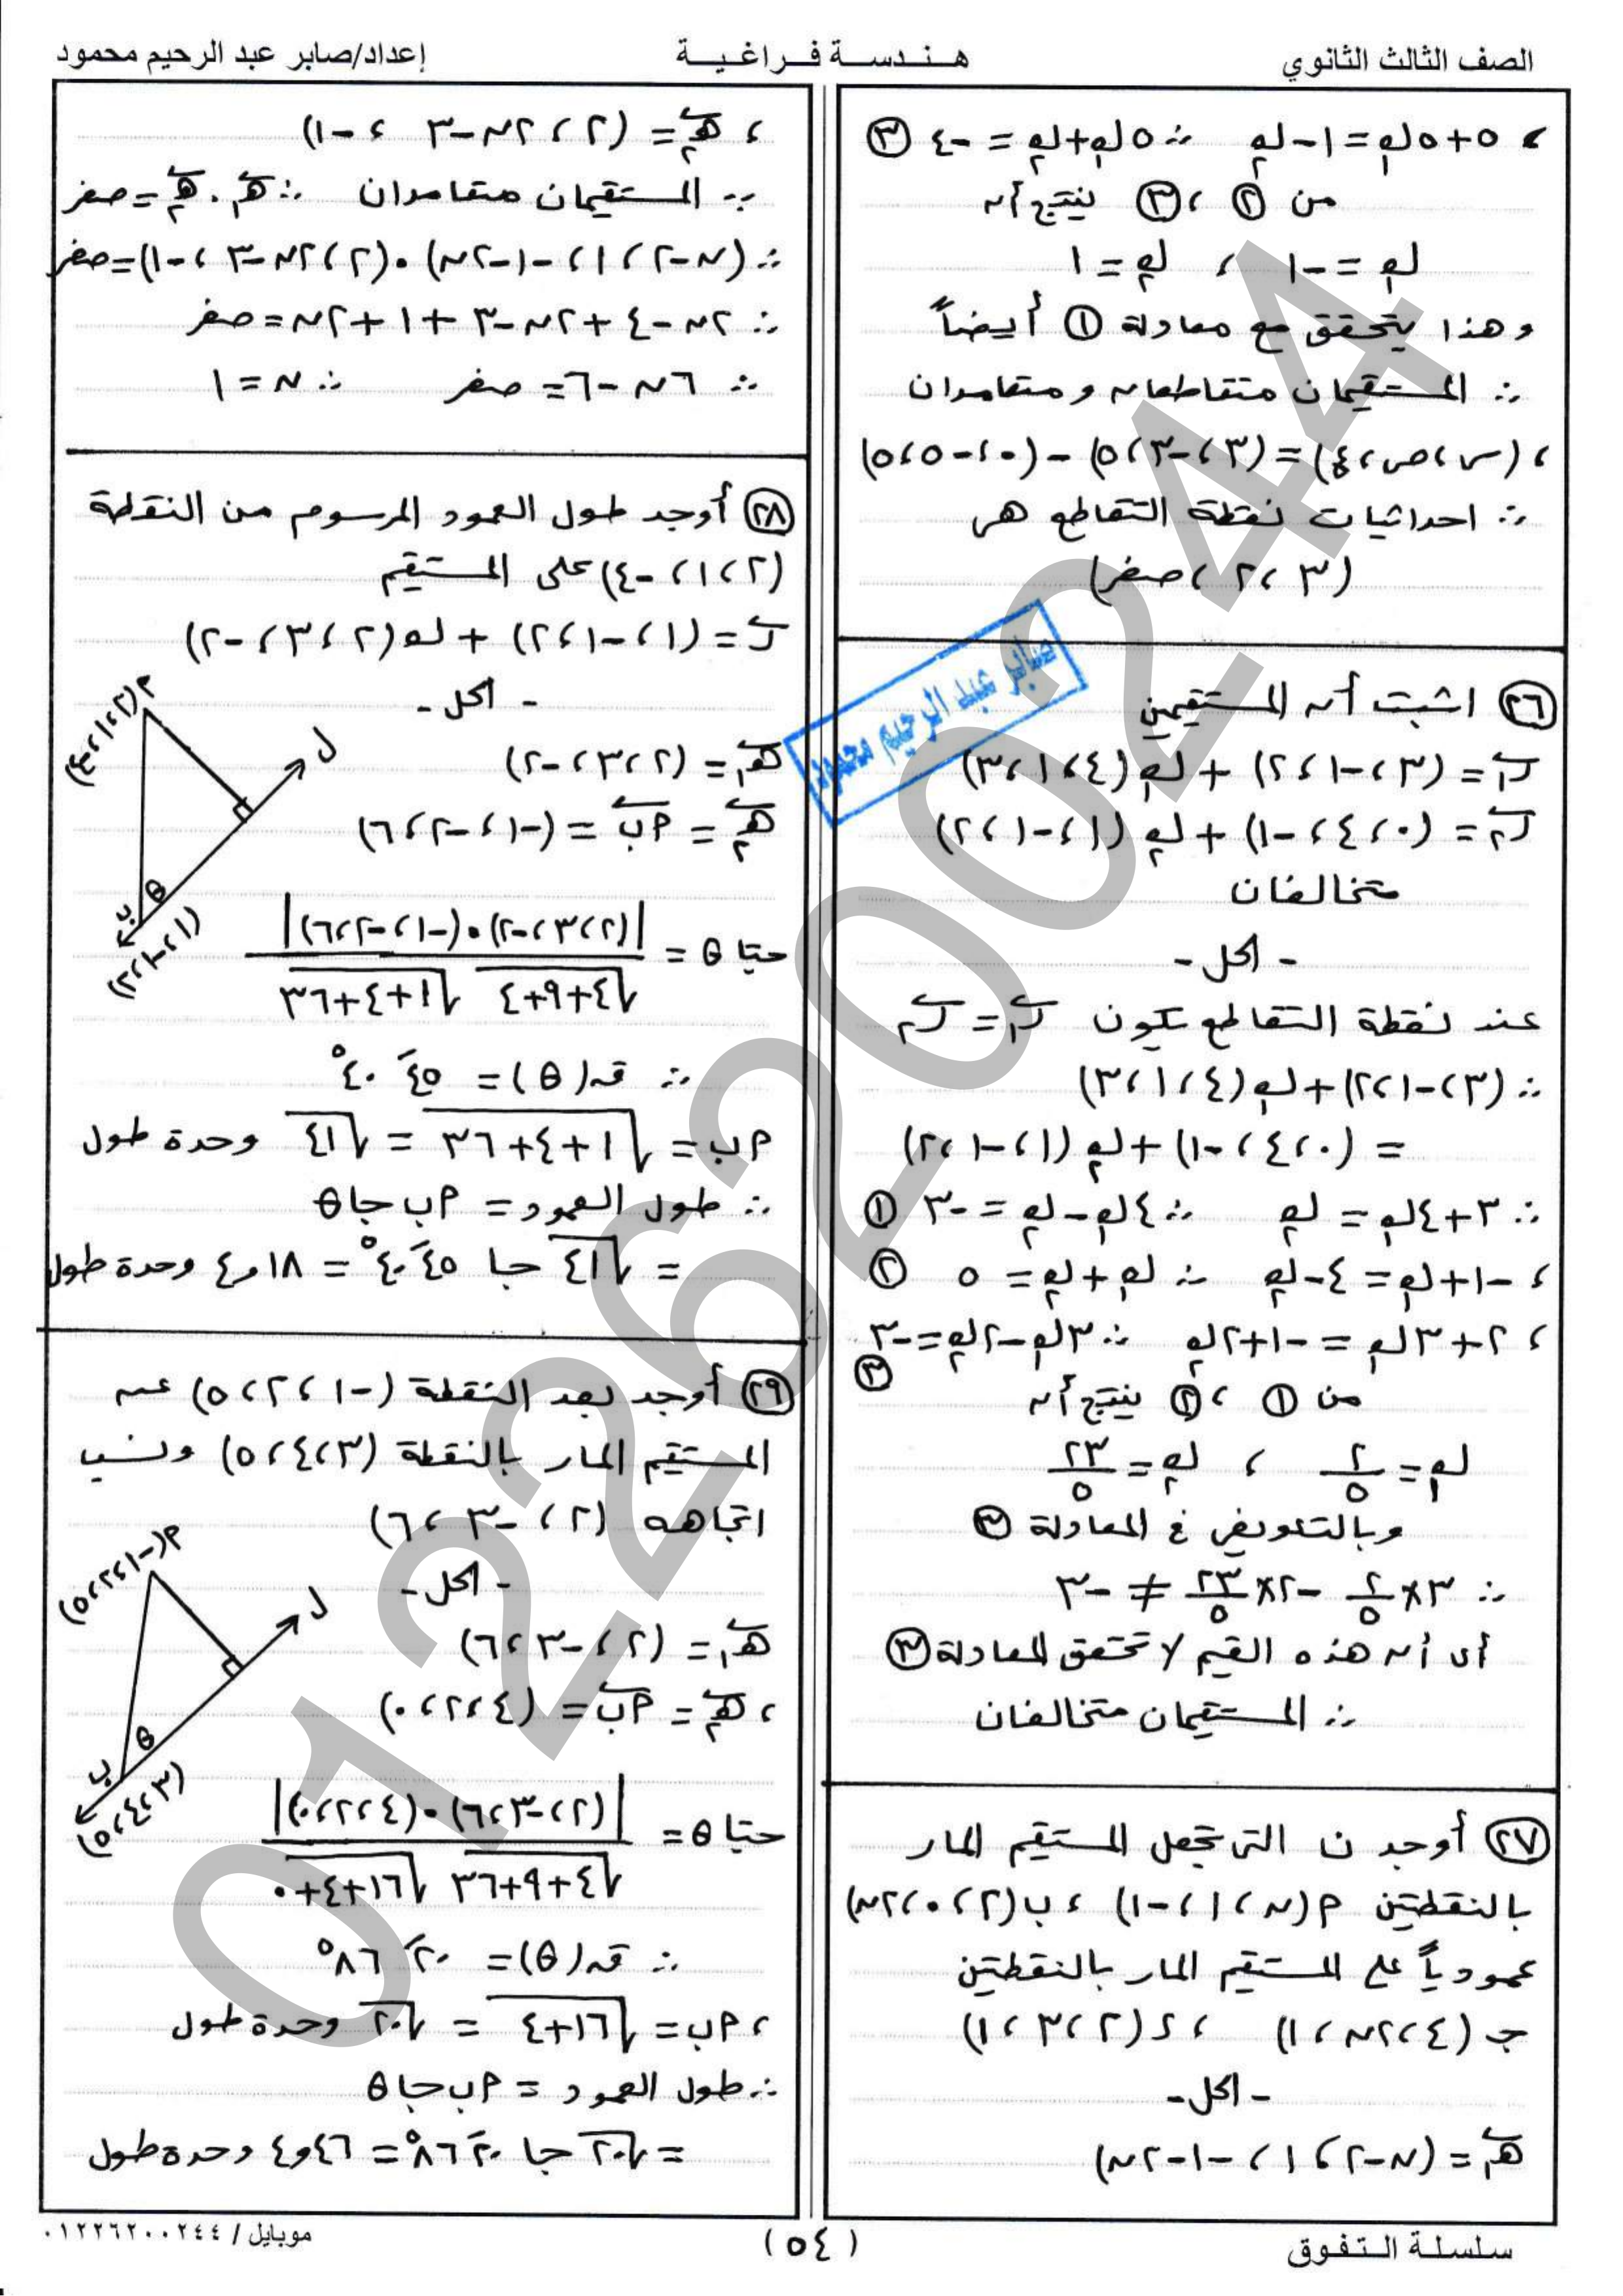 الصف الثالث الثانوي
هندسة فراغية
إعداد/صابر عبد الرحيم محمود
، ٥+٥ل₁=١-ل₂ ∴ ٥ل₁+ل₂=-٤ (٣)
من (٢)، (٣) ينتج أن
ل₁=-١ ، ل₂=١
وهذا يتحقق مع معادلة (١) أيضاً
∴ المستقيمان متقاطعان ومتعامدان
، (س،ص،ع)=(٣،-٣،٥)-(٠،-٥،٥)
∴ احداثيات نقطة التقاطع هى
(٣،٢،صفر)
(٢٦) اثبت أن المستقيمين
ر₁=(٣،-١،٢)+ل₁(٤،١،٣)
ر₂=(٠،٤،-١)+ل₂(١،-١،٢)
متخالفان
- الحل -
عند نقطة التقاطع تكون ر₁=ر₂
∴ (٣،-١،٢)+ل₁(٤،١،٣)
=(٠،٤،-١)+ل₂(١،-١،٢)
∴ ٣+٤ل₁=ل₂ ∴ ٤ل₁-ل₂=-٣ (١)
، -١+ل₁=٤-ل₂ ∴ ل₁+ل₂=٥ (٢)
، ٢+٣ل₁=-١+٢ل₂ ∴ ٣ل₁-٢ل₂=-٣ (٣)
من (١)، (٢) ينتج أن
ل₁=٢/٥ ، ل₂=٢٣/٥
وبالتعويض في المعادلة (٣)
∴ ٣×٢/٥-٢×٢٣/٥≠-٣
أى أن هذه القيم لا تحقق المعادلة (٣)
∴ المستقيمان متخالفان
(٢٧) أوجد ن التى تجعل المستقيم المار
بالنقطتين م(ن،١،-١)، ب(٢،٠،٢ن)
عمودياً على المستقيم المار بالنقطتين
جـ(٤،٢ن،١) ، د(٢،٣،١)
- الحل -
هـ₁=(ن-٢،١،-١-٢ن)
، هـ₂=(٢،٢ن-٣،-١)
∵ المستقيمان متعامدان ∴ هـ₁.هـ₂=صفر
∴ (ن-٢،١،-١-٢ن)•(٢،٢ن-٣،-١)=صفر
∴ ٢ن-٤+٢ن-٣+١+٢ن=صفر
∴ ٦ن-٦=صفر ∴ ن=١
(٢٨) أوجد طول العمود المرسوم من النقطة
(٢،١،-٤) على المستقيم
ر=(١،-١،٢)+ل(٢،٣،-٢)
- الحل -
هـ₁=(٢،٣،-٢)
هـ₂=مب=(-١،-٢،٦)
م(٢،١،-٤)
ل
θ
ب
(١،-١،٢)
حتاθ=|(٢،٣،-٢)•(-١،-٢،٦)|/√(٤+٩+٤) √(١+٤+٣٦)
∴ قـ(θ)=٤٥َ ٤٠°
مب=√(١+٤+٣٦)=√٤١ وحدة طول
∴ طول العمود=مب حاθ
=√٤١ حا ٤٥َ ٤٠°=٤,١٨ وحدة طول
(٢٩) أوجد بعد النقطة (-١،٢،٥) عن
المستقيم المار بالنقطة (٣،٤،٥) ونسب
اتجاهه (٢،-٣،٦)
- الحل -
هـ₁=(٢،-٣،٦)
، هـ₂=مب=(٤،٢،٠)
م(-١،٢،٥)
ل
θ
ب
(٣،٤،٥)
حتاθ=|(٢،-٣،٦)•(٤،٢،٠)|/√(٤+٩+٣٦) √(١٦+٤+٠)
∴ قـ(θ)=٢٠َ ٨٦°
، مب=√(١٦+٤)=√٢٠ وحدة طول
∴ طول العمود=مب حاθ
=√٢٠ حا ٢٠َ ٨٦°=٤,٤٦ وحدة طول
صابر عبد الرحيم محمود
01226200244
سلسلة التفوق
(٥٤)
موبايل / ٠١٢٢٦٢٠٠٢٤٤